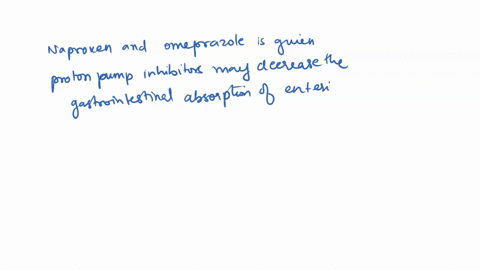 Naproxen and omeprazole is given
proton pump inhibitors may decrease the
gastrointestinal absorption of enteri